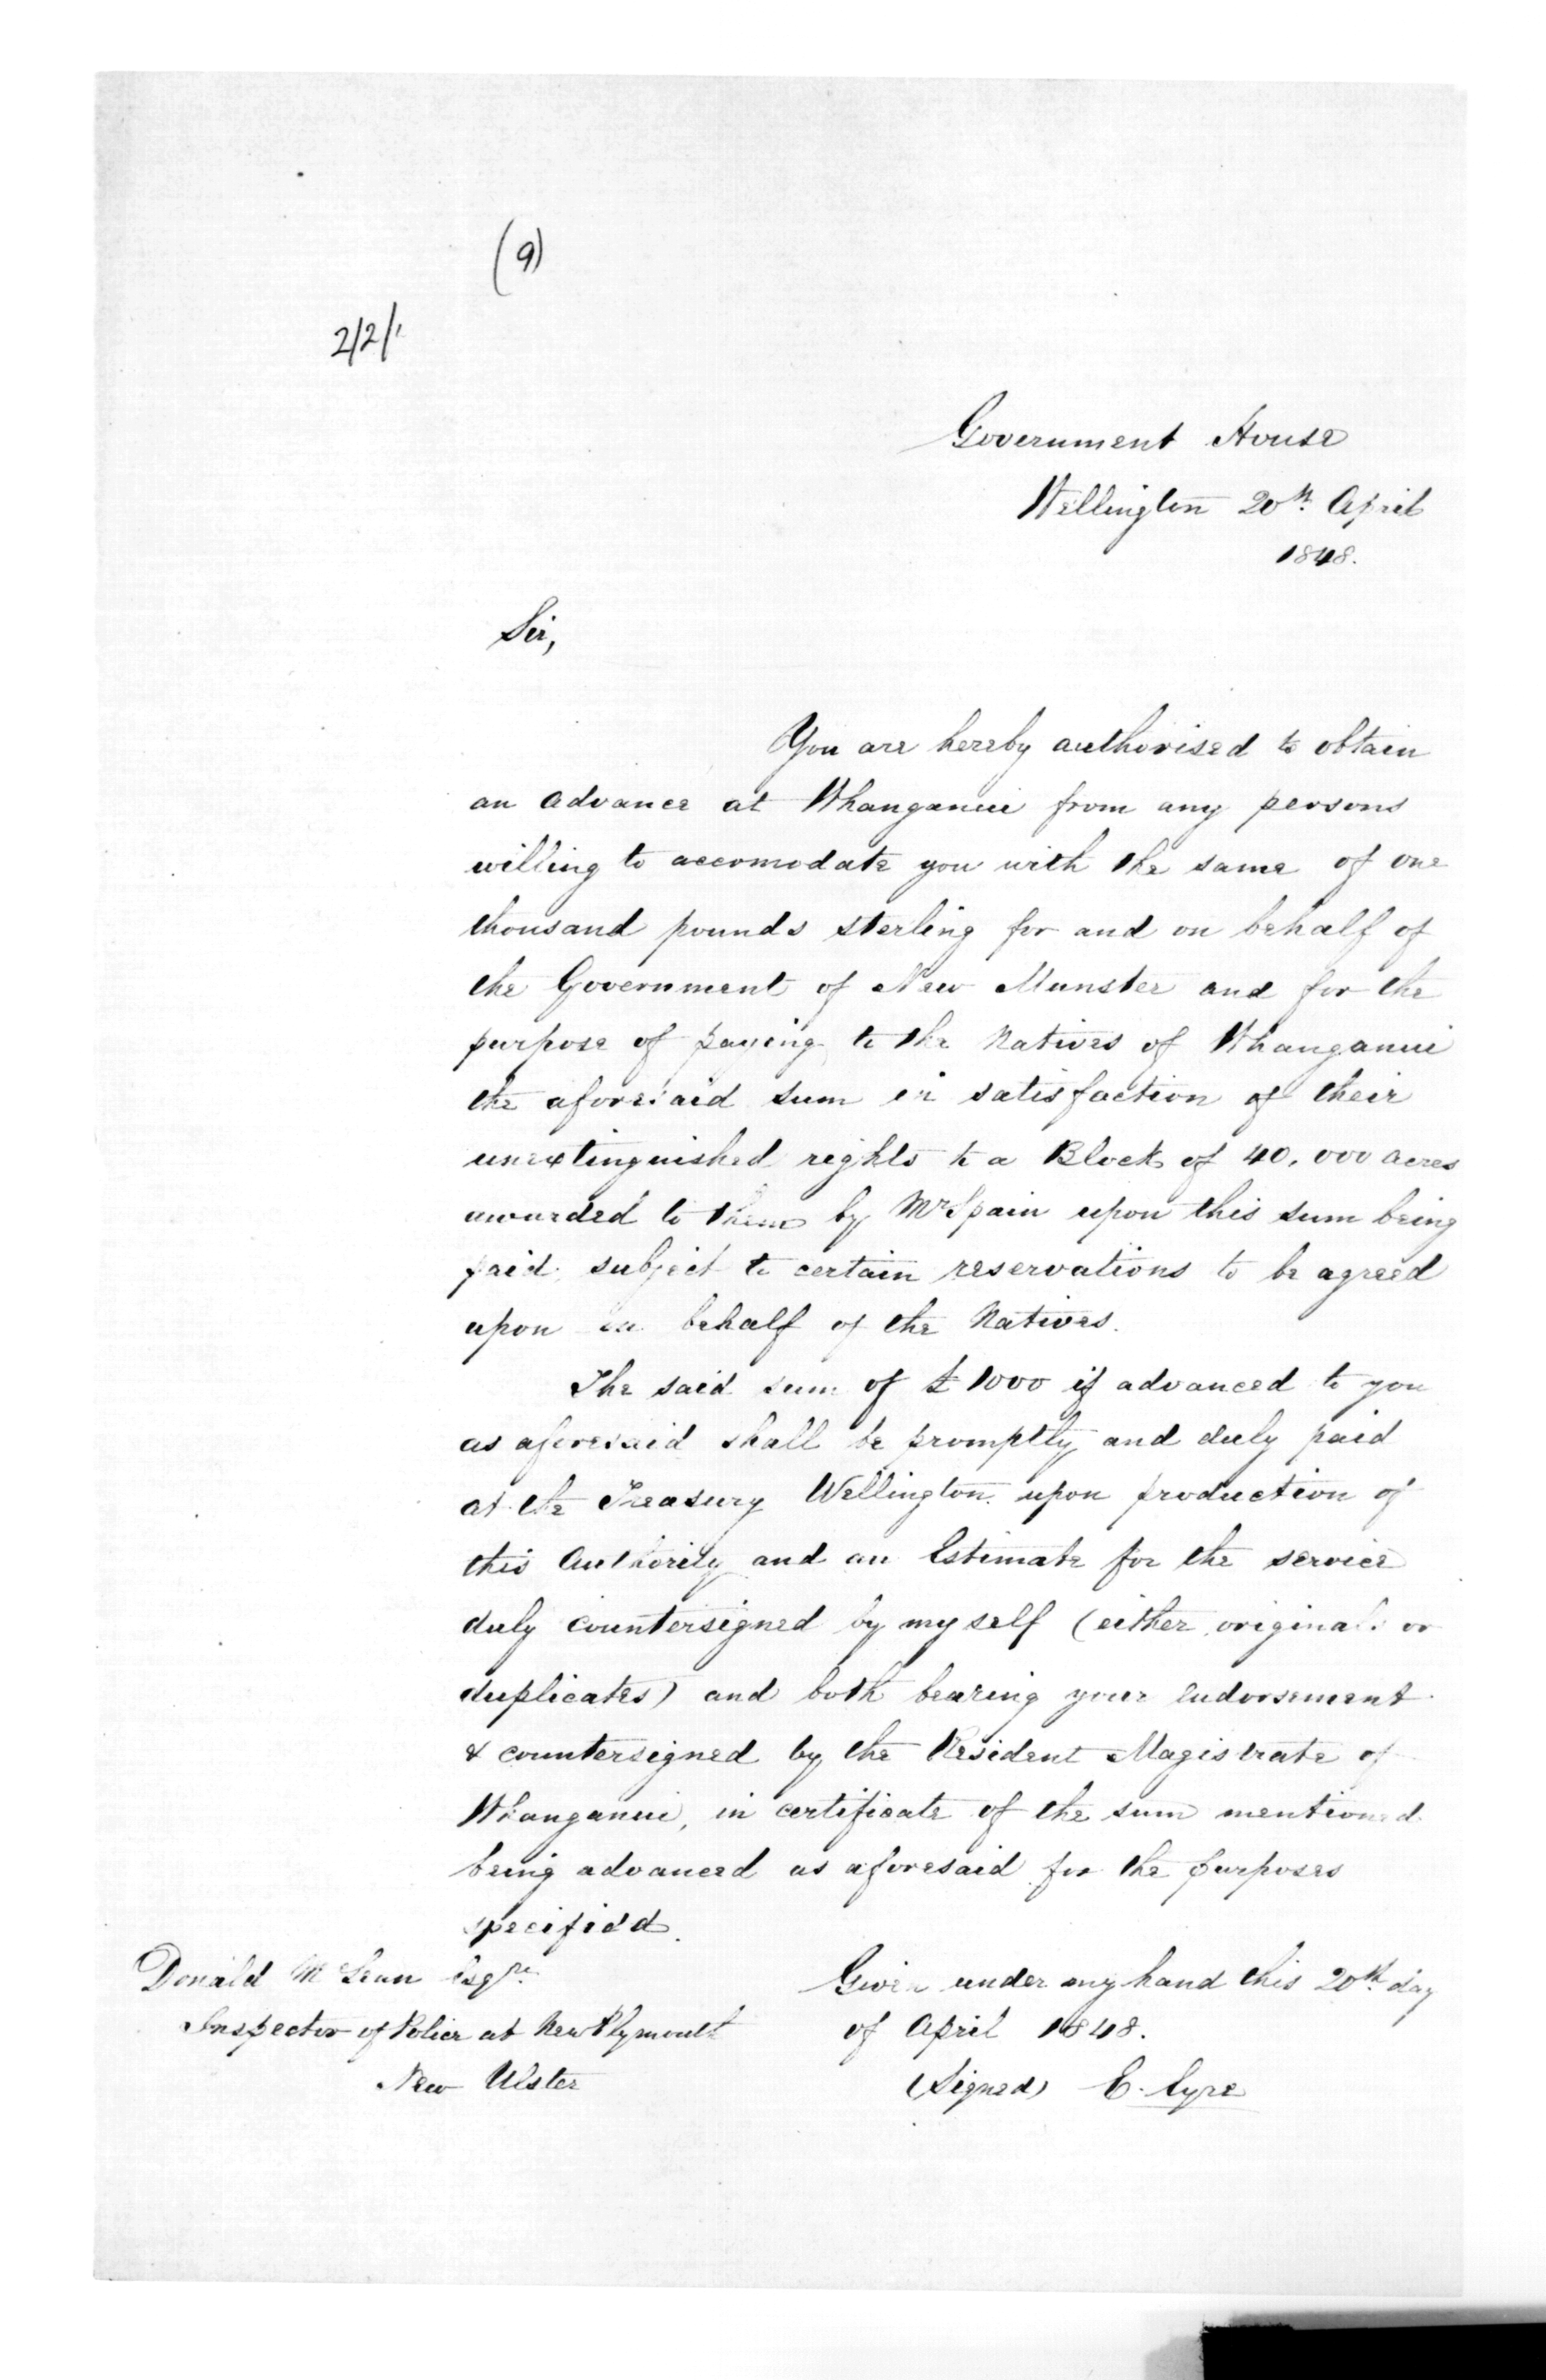 (9)
2/2/1
Government House
Wellington 20th. April
1848.
Sir,
You are hereby authorised to obtain
an advance at Whanganui from any persons
willing to accomodate you with the same of one
thousand pounds sterling for and on behalf of
the Government of New Munster and for the
purpose of paying to the Natives of Whanganui
the aforesaid sum in satisfaction of their
unextinguished rights to a Block of 40,000 acres
awarded to them by Mr Spain upon this sum being
paid, subject to certain reservations to be agreed
upon on behalf of the Natives.
The said sum of £1000 if advanced to you
as aforesaid shall be promptly and duly paid
at the Treasury Wellington upon production of
this Authority and an Estimate for the service
duly countersigned by myself (either originals or
duplicates) and both bearing your endorsement
& countersigned by the Resident Magistrate of
Whanganui, in certificate of the sum mentioned
being advanced as aforesaid for the purposes
specified.
Donald McLean Esqre.
Inspector of Police at New Plymouth
New Ulster
Given under my hand this 20th day
of April 1848.
(Signed) E. Eyre